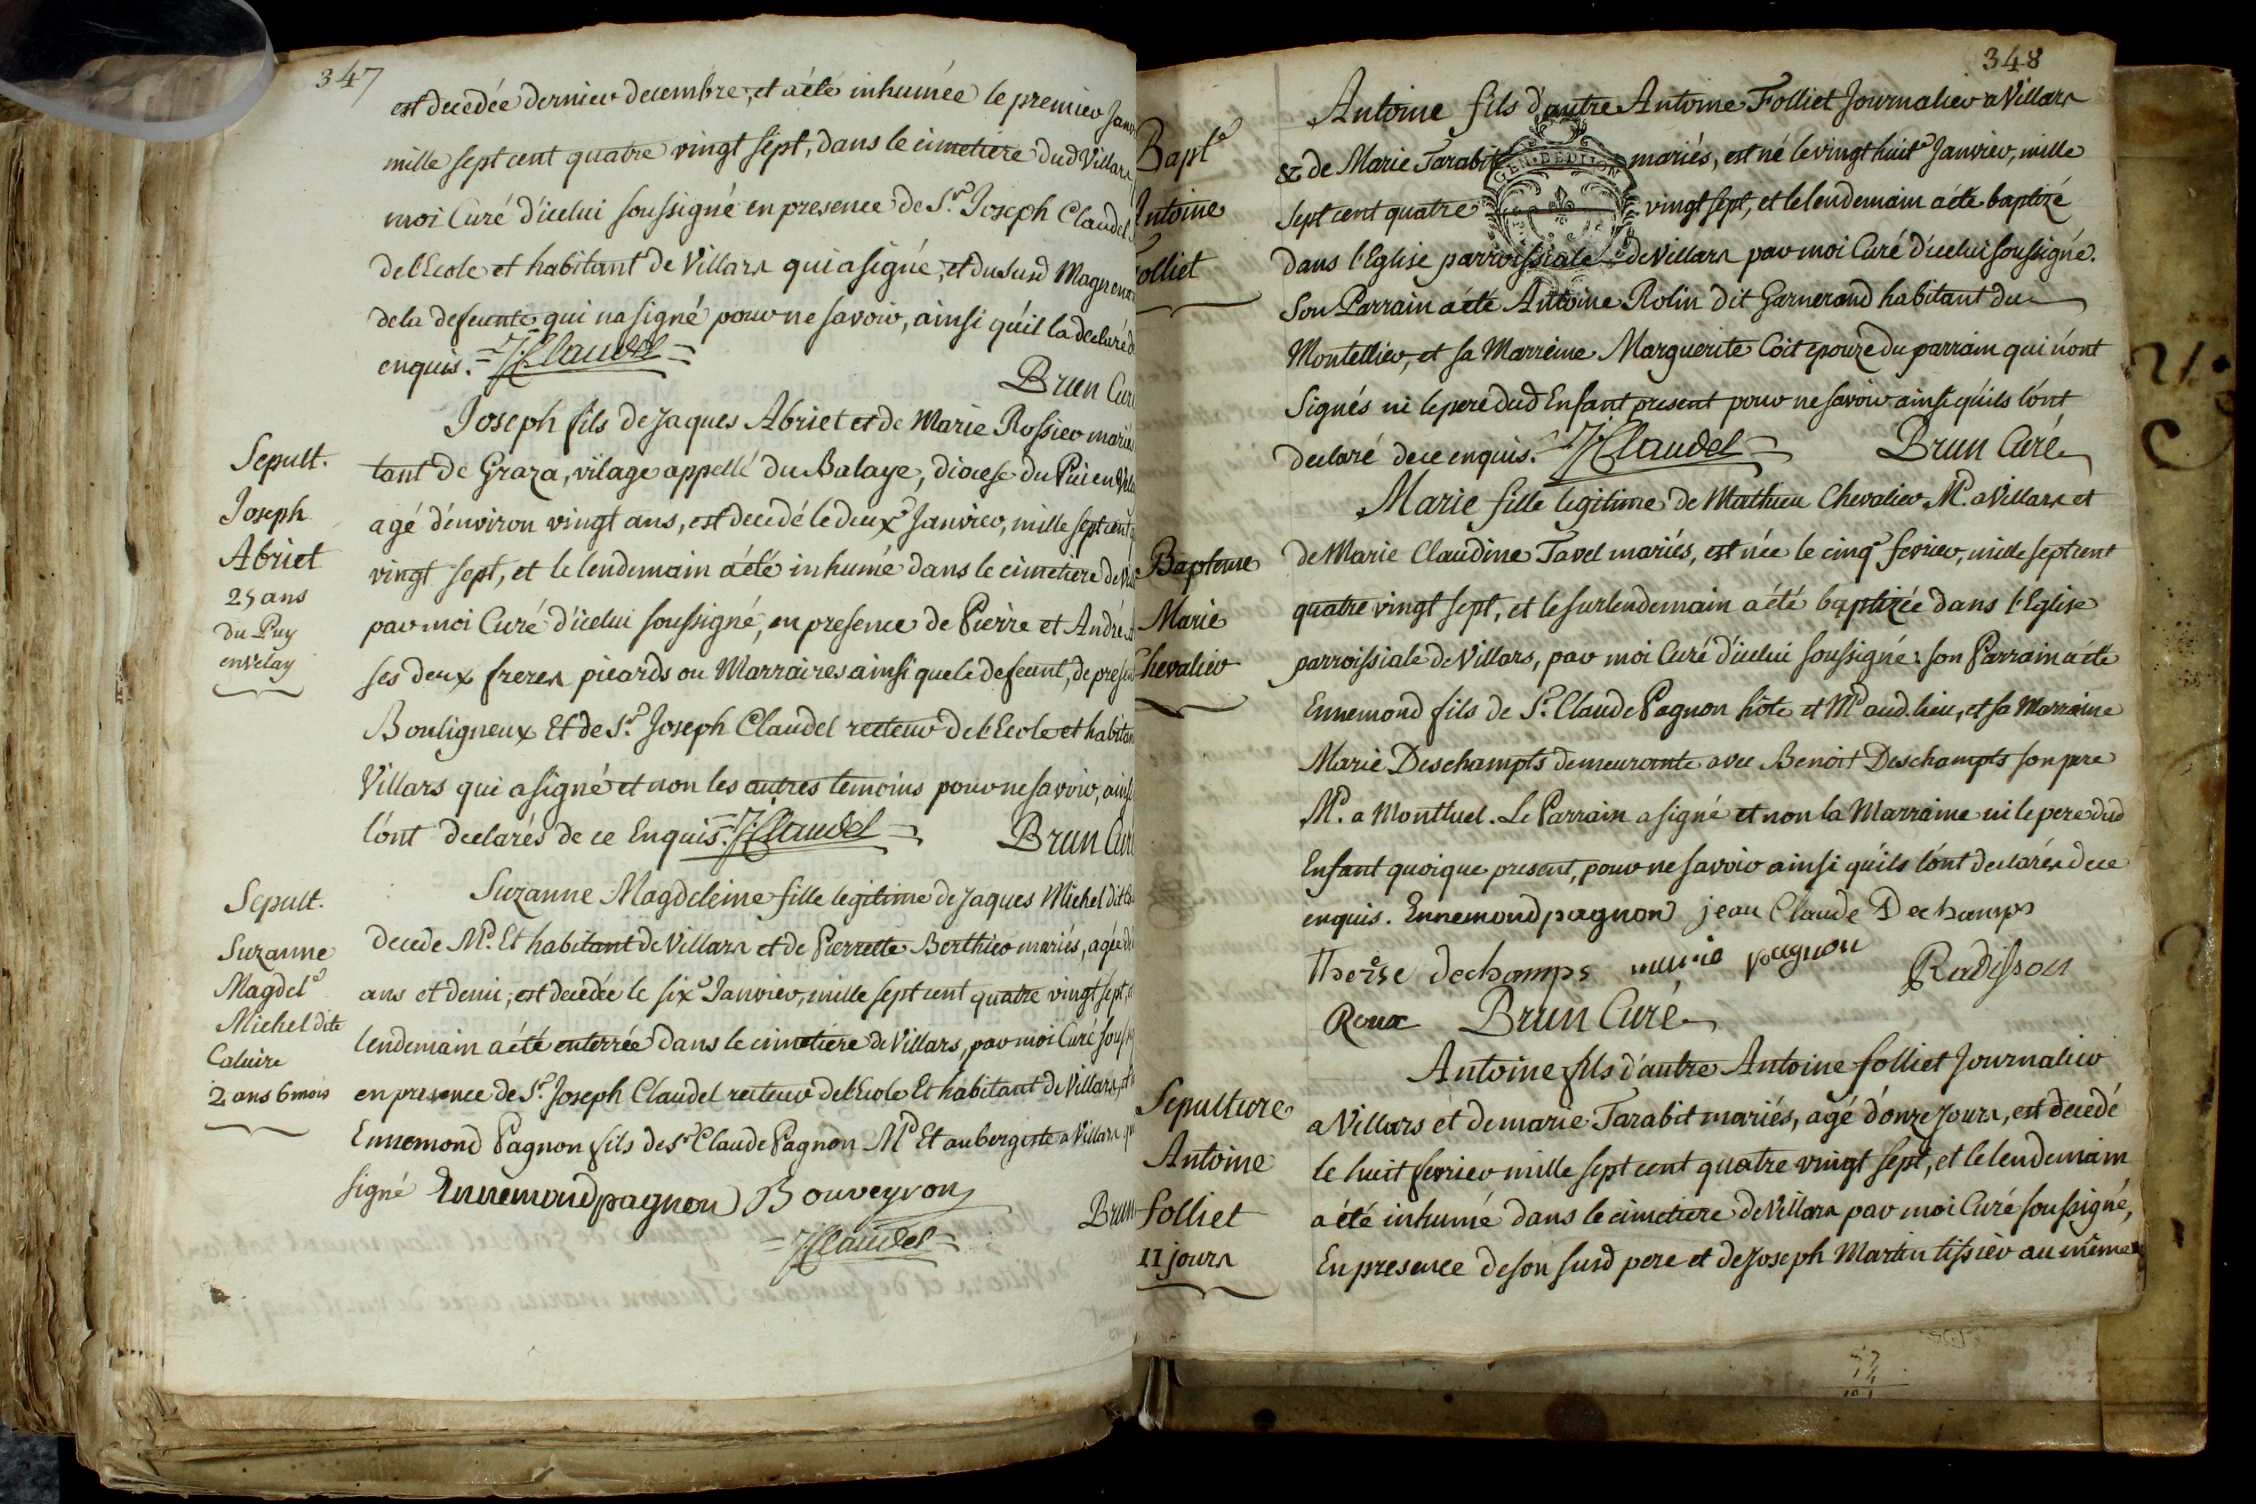 347
est decedée dernier decembre, et a été inhumée le premier Janv
mille sept cent quatre vingt sept, dans le cimetiere dud Villars
moi Curé d'icelui soussigné en presence de Sr. Joseph Claudel
de l'Ecole et habitant de Villars qui a signé, et du susd Magnen
de la defeunte qui na signé pour ne savoir, ainsi qu'il la declaré d
enquis. J Claudel
Brun Curé
Sepult.
Joseph
Abriet
25 ans
du Puy
en velay
Joseph fils de Jaques Abriet et de Marie Rossier mariés
tant de Graza, vilage appellé du Balaye, diocese du Pui en Vela
agé d'environ vingt ans, est decedé le deuxe Janvier, mille sept cent
vingt sept, et le lendemain a été inhumé dans le cimetiere de Vil
par moi Curé d'icelui soussigné, en presence de Pierre et André
ses deux freres picards ou Marraires ainsi que le defeunt, de presen
Bouligneux Et de Sr. Joseph Claudel recteur de l'Ecole et habitan
Villars qui a signé et non les autres temoins pour ne savoir, ainsi
l'ont declarés de ce Enquis. J Claudel
Brun Curé
Sepult.
Suzanne
Magdele
Michel dite
Caluire
2 ans 6 mois
Suzanne Magdeleine fille legitime de Jaques Michel dit Ca
decede Md. Et habitant de Villars et de Pierrette Berthier mariés, agée de
ans et demi, est decedée le sixe Janvier, mille sept cent quatre vingt sept,
lendemain a été enterrée dans le cimetiere de Villars, par moi Curé sous
en presence de Sr. Joseph Claudel recteur de l'Ecole Et habitant de Villars, et
Ennemond Pagnon fils de Sr Claude Pagnon Md Et aubergiste a Villars qu
signé Ennemond pagnon Bouveyron
Brun
J Claudel
348
Bapte
Antoine
Folliet
Antoine fils d'autre Antoine Folliet Journalier a Villars
& de Marie Tarabit mariés, est né le vingt huite Janvier, mille
GEN. DE DIJON
sept cent quatre vingt sept, et le lendemain a été baptizé
dans l'Eglise parroissiale de Villars par moi Curé d'icelui soussigné.
Son Parrain a été Antoine Rolin dit Garnerand habitant du
Montellier, et sa Marreine Marguerite Coit epouze du parrain qui n'ont
Signés ni le pere dud Enfant present pour ne savoir ainsi qu'ils l'ont
declaré de ce enquis. J Claudel Brun Curé
Bapteme
Marie
Chevalier
Marie fille legitime de Mathieu Chevalier Md. a Villars et
de Marie Claudine Tavel mariés, est née le cinqe fevrier, mille sept cent
quatre vingt sept, et le surlendemain a été baptizée dans l'Eglise
parroissiale de Villars, par moi Curé d'icelui soussigné: son Parrain a été
Ennemond fils de Sr. Claude Pagnon hôte et Md aud. lieu, et sa Marraine
Marie Deschampts demeurante avec Benoit Deschampts son pere
Md. a Montluel. Le Parrain a signé et non la Marraine ni le pere dud
Enfant quoique present, pour ne savoir ainsi qu'ils l'ont declarés de ce
enquis. Ennemond pagnon jean Claude Dechamps
Therese dechamps marie pagnon Radisson
Roux Brun Curé
Sepulture
Antoine
folliet
11 jours
Antoine fils d'autre Antoine folliet Journalier
a Villars et de marie Tarabit mariés, agé d'onze Jours, est decedé
le huit fevrier mille sept cent quatre vingt sept, et le lendemain
a été inhumé dans le cimetiere de Villars par moi Curé soussigné,
En presence de son susd pere et de Joseph Martin tissier au même